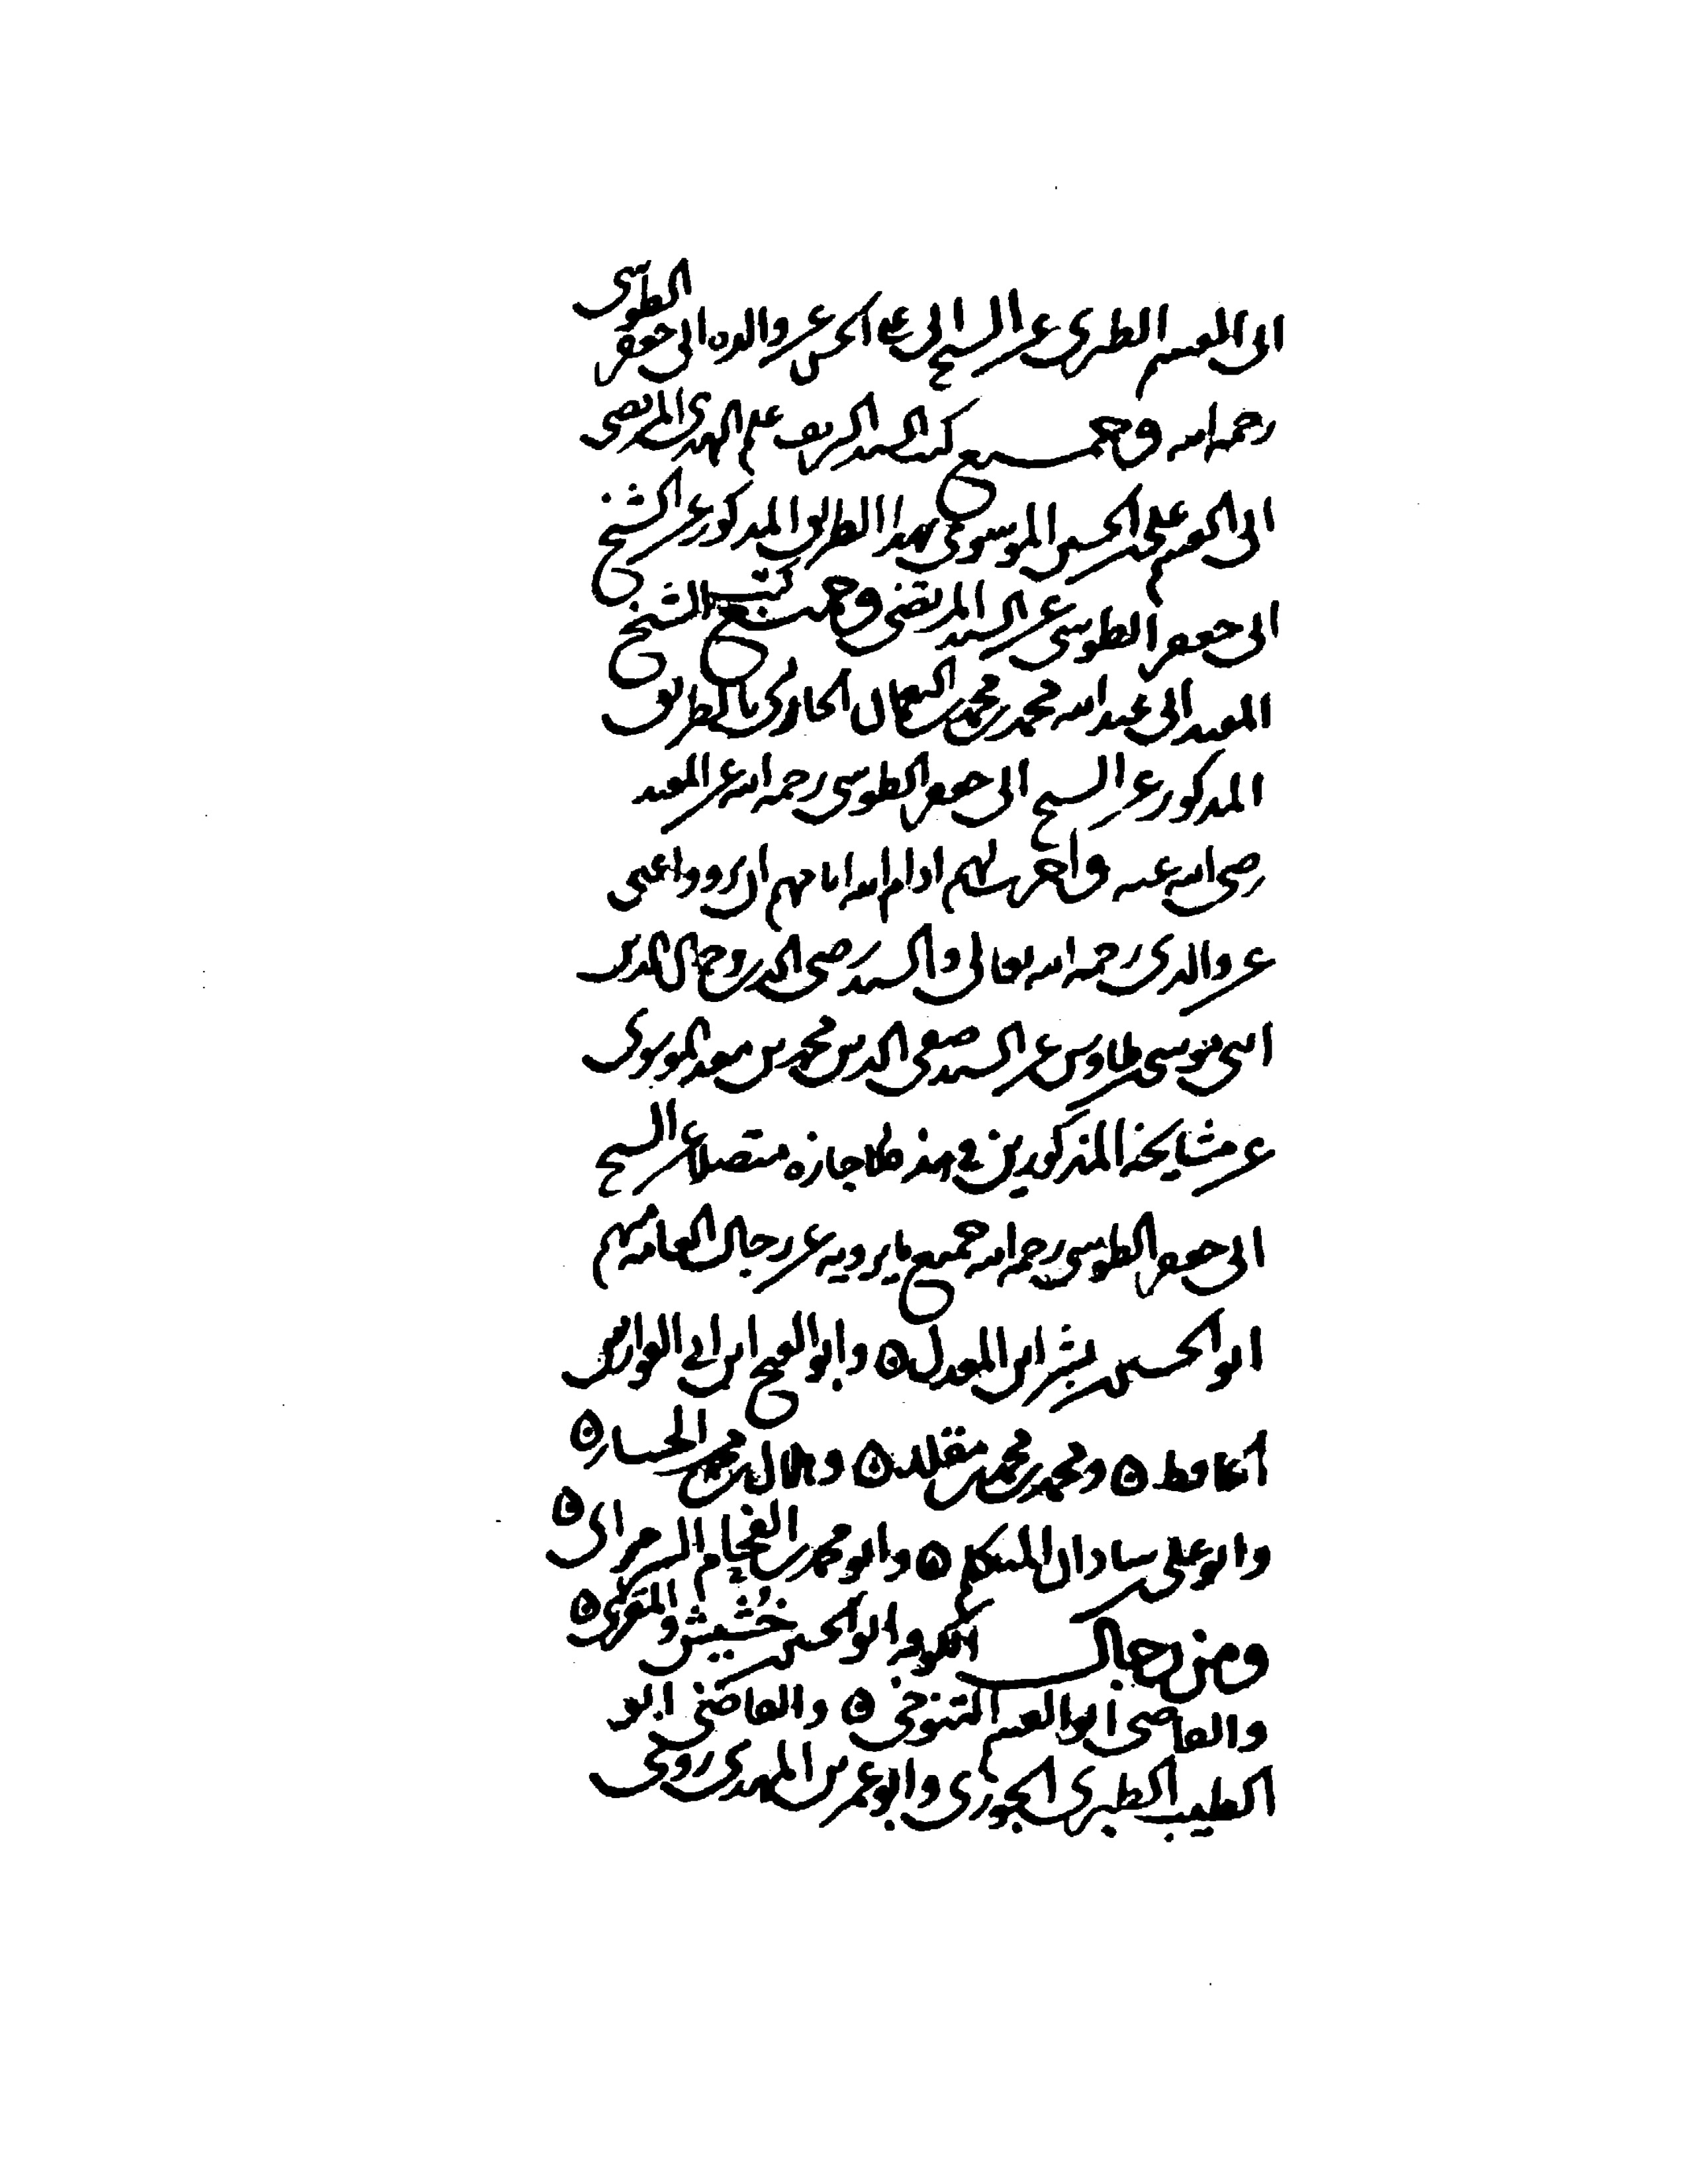 ابى القسم الطبرى عن الشيخ ابى على الحسن عن والده ابى جعفر الطوسى
رحمه الله وجميع كتب السيد الشريف علم الهدى المرتضى
ابى القسم على بن الحسين الموسوى بهذا الطريق المذكور عن الشيخ
ابى جعفر الطوسى عن السيد المرتضى وجميع كتب الشيخ
المفيد ابى عبد الله محمد بن محمد بن النعمان الحارثى بالطريق
المذكور عن الشيخ ابى جعفر الطوسى رحمه الله عن المفيد
رضى الله عنه واجزت لهم ادام الله ايامهم ان يرووا عنى
عن والدى رحمه الله تعالى والسيد رضى الدين وجمال الدين
ابنى موسى بن طاوس عن السيد صفى الدين محمد بن معد الموسوى
عن مشايخه المذكورين فى هذه الاجازة متصلا عن الشيخ
ابى جعفر الطوسى رحمه الله جميع ما يرويه عن رجال العامة منهم
ابو الحسين بن بشران المعدل وابو الفتح ابن ابى الفوارس
الحافظ ومحمد بن محمد بن مقلد وهلال بن محمد الحفار
وابو على بن شاذان المتكلم وابو محمد بن الفحام السرمرائى
ومن رجال الكوفة ابو الحسين بن خشيش المقرى
والقاضى ابو القسم التنوخى والقاضى ابو
الطيب الطبرى الجوزى وابو عمر بن المهدى روى